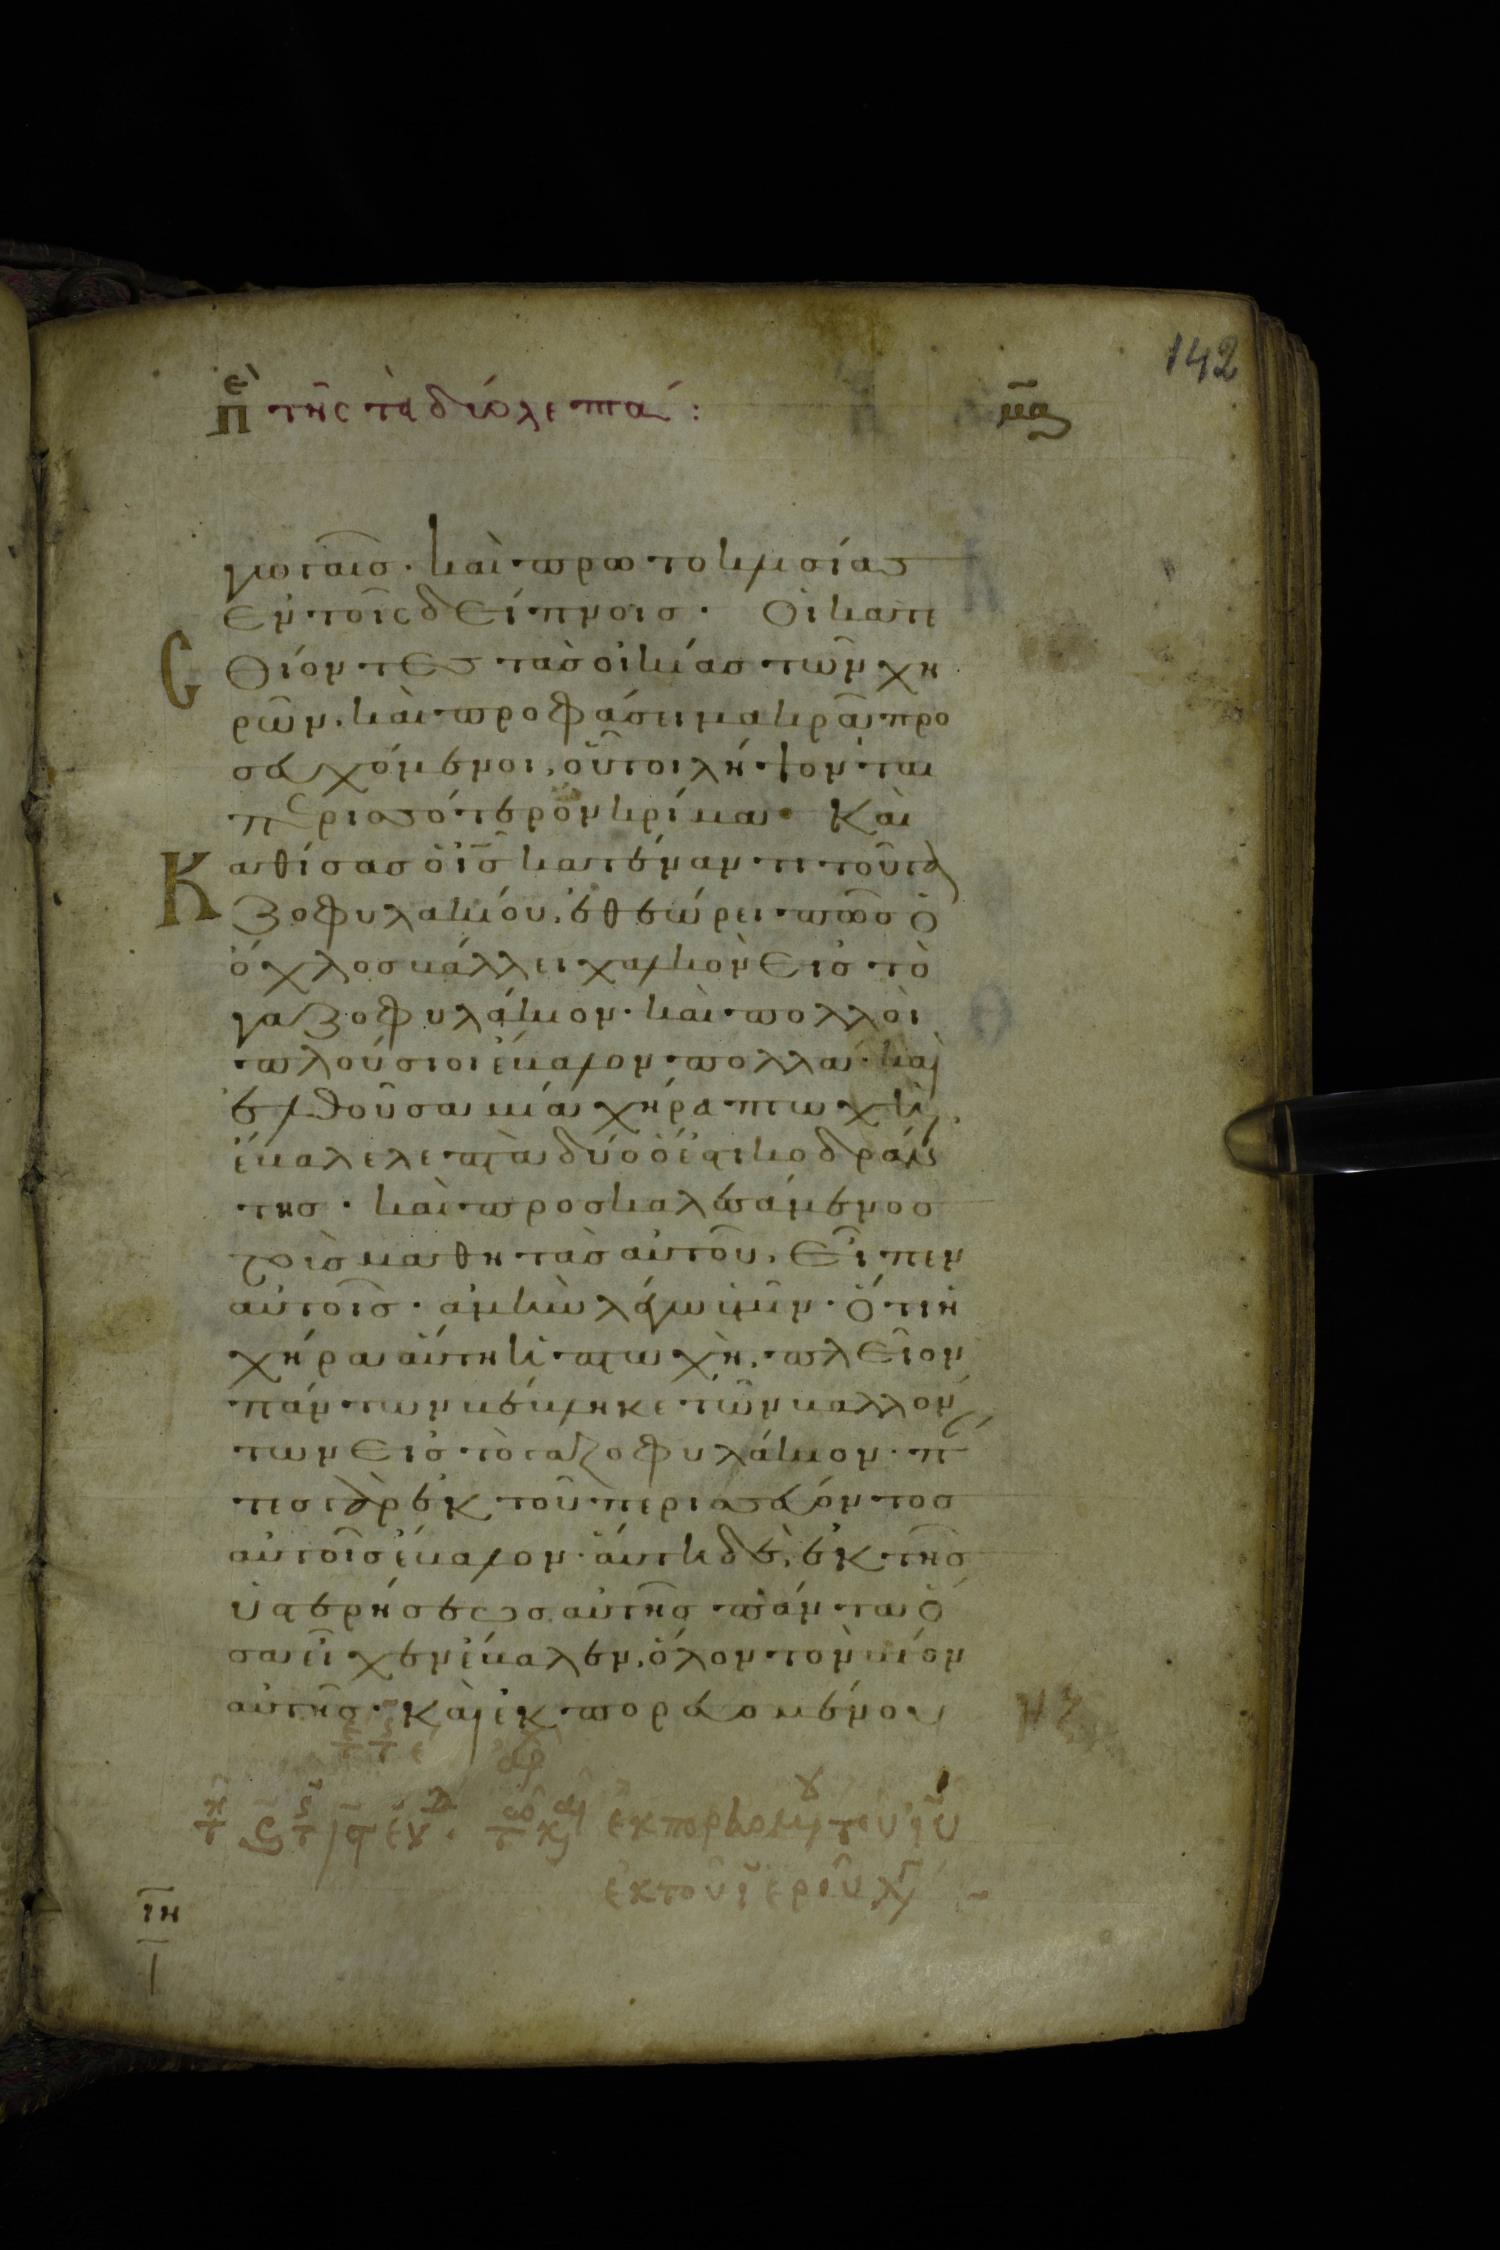 142
πὲ τῆς τὰ δύο λεπτά: μα
γωγαῖσ· καὶ πρωτοκλισίας
ἐν τοῖς δείπνοισ· Οἱ κατε
σθίοντες τὰσ οἰκίασ τῶν χη
ρῶν, καὶ προφάσει μακρᾶι προ
σευχόμενοι, οὗτοι λήψονται
περισσότερον κρίμα· Καὶ
Καθίσασ ὁ ισ̅ κατέναντι τοῦ γα
ζοφυλακίου, ἐθεώρει πῶσ ὁ
ὄχλοσ βάλλει χαλκὸν εἰσ τὸ
γαζοφυλάκιον· καὶ πολλοὶ
πλούσιοι ἔβαλον πολλά· καὶ
ἐλθοῦσα μία χήρα πτωχὴ,
ἔβαλε λεπτὰ δύο ὅ ἐστι κοδράν
τησ· καὶ προσκαλεσάμενοσ
τοὺσ μαθητὰσ αὐτοῦ, εἶπεν
αὐτοῖσ· ἀμὴν λέγω ὑμῖν· ὅτι ἡ
χήρα αὕτη ἡ πτωχὴ, πλεῖον
πάντων βέβληκε τῶν βαλλόν
των εἰσ τὸ γαζοφυλάκιον· πάν
τεσ γὰρ ἐκ τοῦ περισσεύοντοσ
αὐτοῖσ ἔβαλον· αὕτη δὲ, ἐκ τῆσ
ὑστερήσεωσ αὐτῆσ πάντα ὅ
σα εἶχεν ἔβαλεν, ὅλον τὸν βίον
αὐτῆσ· Καὶ ἐκπορευομένου
ἐκπορευομένου τοῦ ιυ̅
ἐκ τοῦ ἱεροῦ
ιη̅